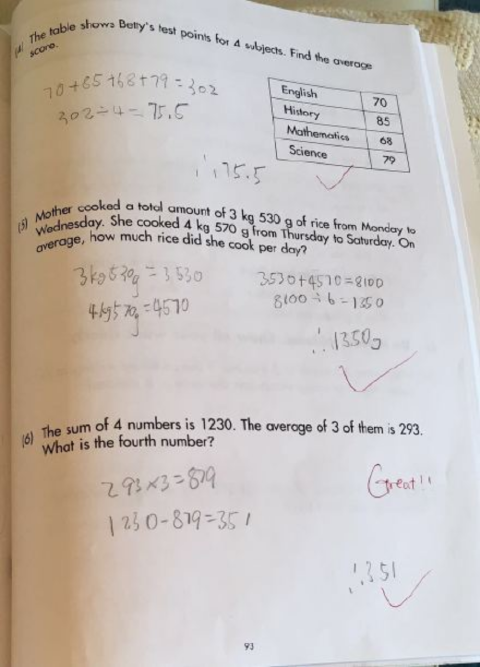 (4) The table shows Betty's test points for 4 subjects. Find the average
score.
70+85+68+79=302
302÷4=75.5
English 70
History 85
Mathematics 68
Science 79
∴75.5
(5) Mother cooked a total amount of 3 kg 530 g of rice from Monday to
Wednesday. She cooked 4 kg 570 g from Thursday to Saturday. On
average, how much rice did she cook per day?
3kg530g=3530
4kg570g=4570
3530+4570=8100
8100÷6=1350
∴1350g
(6) The sum of 4 numbers is 1230. The average of 3 of them is 293.
What is the fourth number?
293×3=879
1230-879=351
Great!!
∴351
93